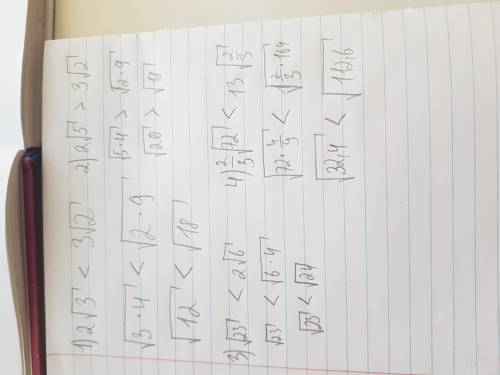 1) 2√3 < 3√2
√3·4 < √2·9
√12 < √18
2) 2√5 > 3√2
√5·4 > √2·9
√20 > √18
3) √23 < 2√6
√23 < √6·4
√23 < √24
4) 2/3 √72 < 13 √2/3
√72·4/9 < √2/3·164
√32,4 < √112,6